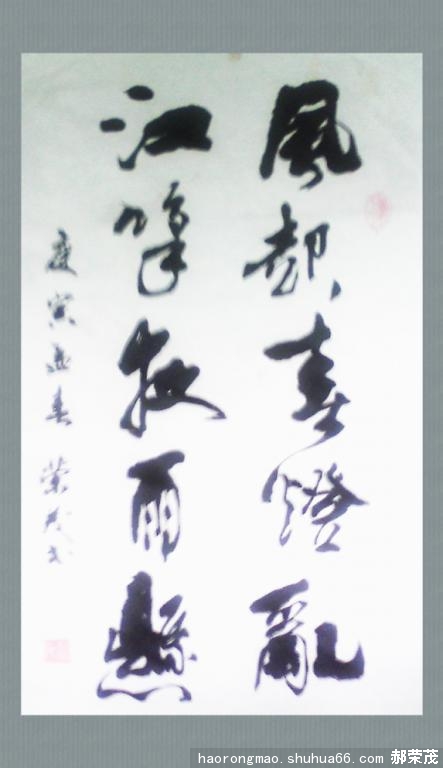 風起春燈亂
江鳴夜雨懸
庚寅孟春 榮茂书
haorongmao.shuhua66.com 郝荣茂